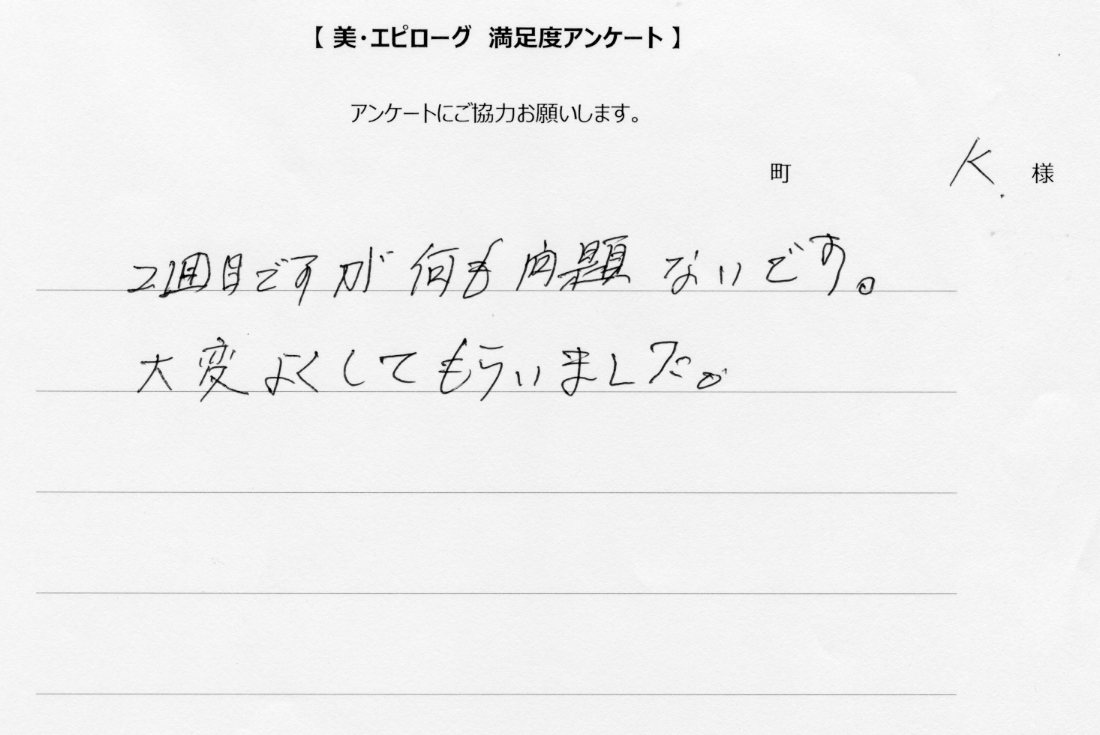 【 美・エピローグ 満足度アンケート 】
アンケートにご協力お願いします。
町 K. 様
2回目ですが何も問題ないです。
大変よくしてもらいました。